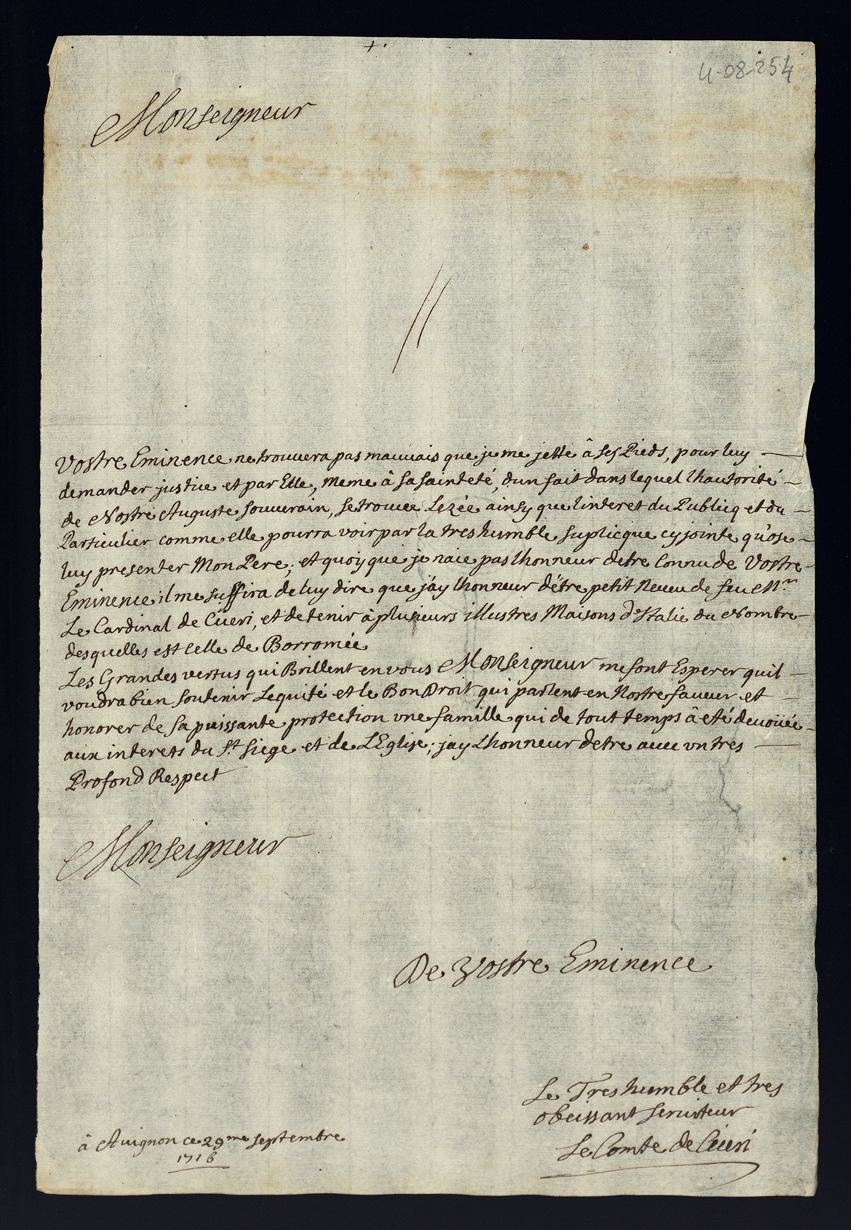 4-08-254
Monseigneur
Vostre Eminence ne trouvera pas mauvais que je me jette à ses Pieds, pour luy
demander justice et par Elle, meme à sa sainteté, d'un fait dans lequel l'hautorité
de Nostre Auguste souverain, se trouve Lezée ainsy que l'interet du Publicq et du
Particulier comme elle pourra voir par la tres humble suplicque cy jointe qu'ose
luy presenter Mon Pere; et quoy que je naie pas lhonneur dêtre Connu de Vostre
Eminence il me suffira de luy dire que jay lhonneur dêtre petit Neveu de feu Mr
Le Cardinal de Cueri, et de tenir à plusieurs illustres Maisons d'Italie du Nombre
desquelles est celle de Borromée
Les Grandes vertus qui Brillent en vous Monseigneur me font Esperer quil
voudra bien soutenir Lequité et le Bon Droit qui parlent en Nostre faveur et
honorer de sa puissante protection une famille qui de tout temps à eté devouée
aux interets du St Siege et de L'Eglise; jay Lhonneur detre avec un tres
Profond Respect
Monseigneur
De Vostre Eminence
Le Tres humble et tres
obeissant serviteur
Le Comte de Cueri
à Avignon ce 29me septembre
1716